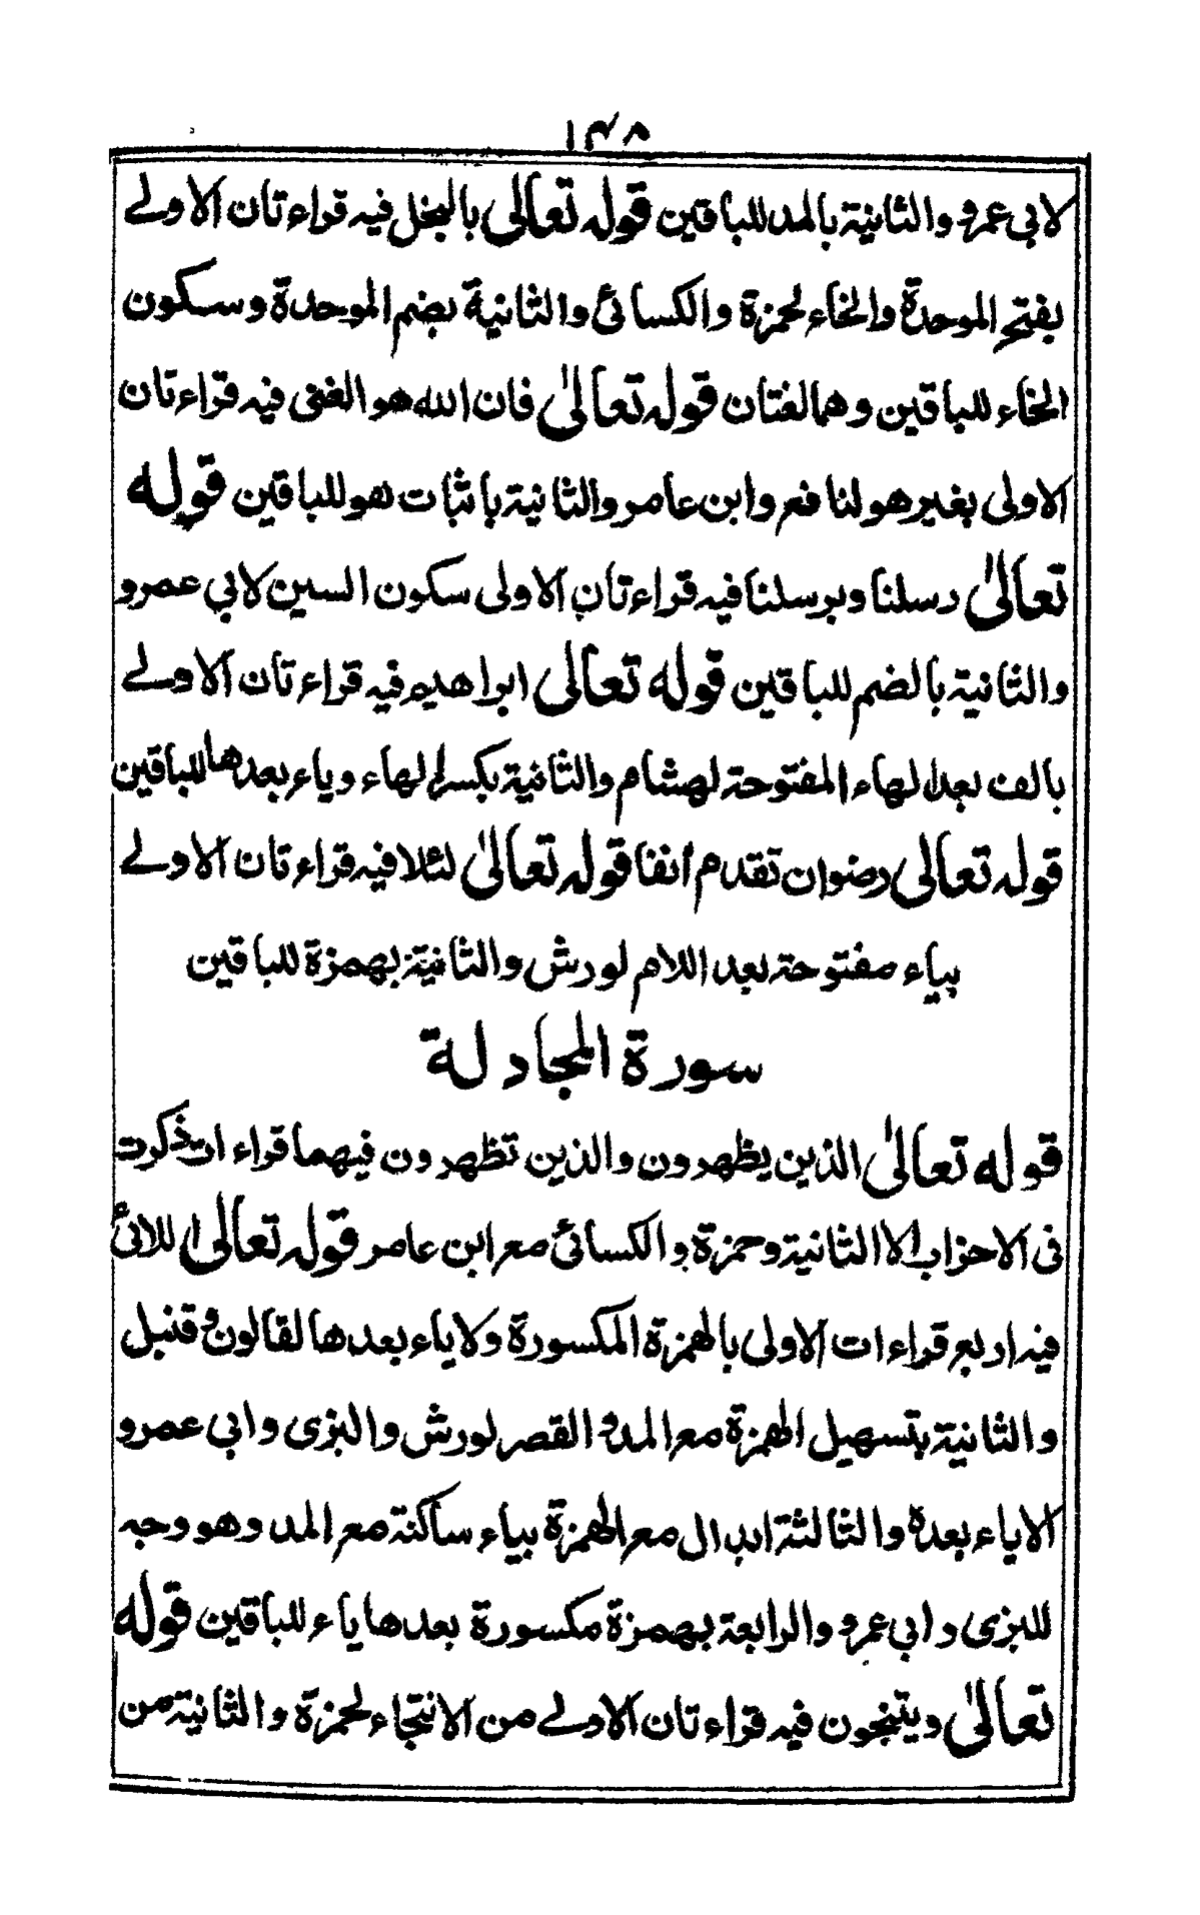 ١٤٨
لابي عمرو والثانية بالمد للباقين قوله تعالى بالبخل فيه قراءتان الاولے
بفتح الموحدة والخاء لحمزة والكسائي والثانية بضم الموحدة وسكون
الخاء للباقين وهما لغتان قوله تعالىٰ فان الله هو الغنى فيه قراءتان
الاولى بغير هو لنافع وابن عامر والثانية باثبات هو للباقين قوله
تعالىٰ رسلنا وبرسلنا فيه قراءتان الاولى سكون السين لابي عمرو
والثانية بالضم للباقين قوله تعالى ابراهيم فيه قراءتان الاولے
بالف بعد الهاء المفتوحة لهشام والثانية بكسر الهاء وياء بعدها للباقين
قوله تعالى رضوان تقدم أنفا قوله تعالىٰ لئلا فيه قراءتان الاولے
بياء مفتوحة بعد اللام لورش والثانية بهمزة للباقين
سورة المجادلة
قوله تعالىٰ الذين يظهرون والذين تظهرون فيهما قراءات ذكرت
فى الاحزاب الا الثانية وحمزة والكسائي مع ابن عامر قوله تعالى اللائي
فيه اربع قراءات الاولى بالهمزة المكسورة ولا ياء بعدها لقالون وقنبل
والثانية بتسهيل الهمزة مع المد والقصر لورش والبزى وابي عمرو
الا ياء بعده والثالثة ابدال مع الهمزة بياء ساكنة مع المد وهو وجه
للبزى وابي عمرو والرابعة بهمزة مكسورة بعدها ياء للباقين قوله
تعالىٰ ويتنجون فيه قراءتان الاولے من الانتجاء لحمزة والثانية من